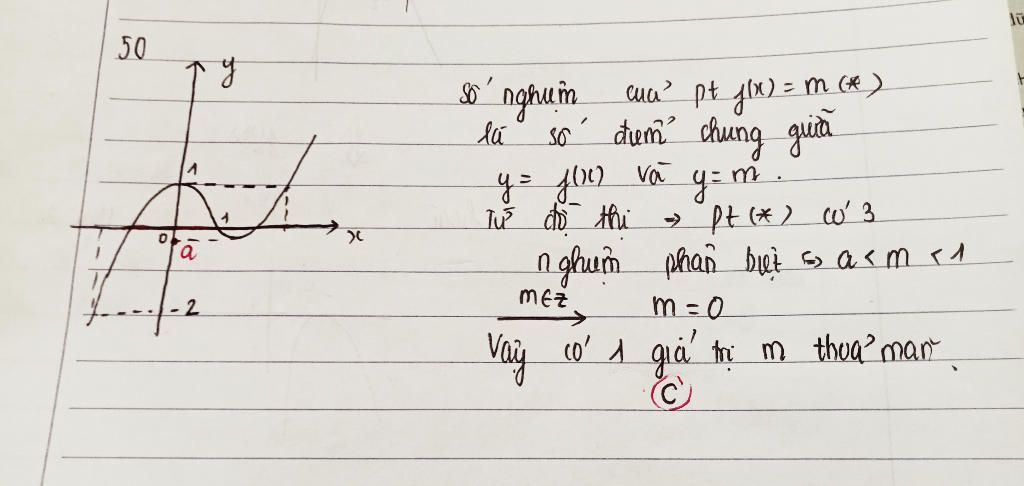 50
y
1
1
0
a
x
-2
Số nghiệm của pt f(x) = m (*)
là số điểm chung giữa
y = f(x) và y = m.
Từ đồ thị → pt (*) có 3
nghiệm phân biệt ⇔ a < m < 1
m∈Z → m = 0
Vậy có 1 giá trị m thoả mãn.
C